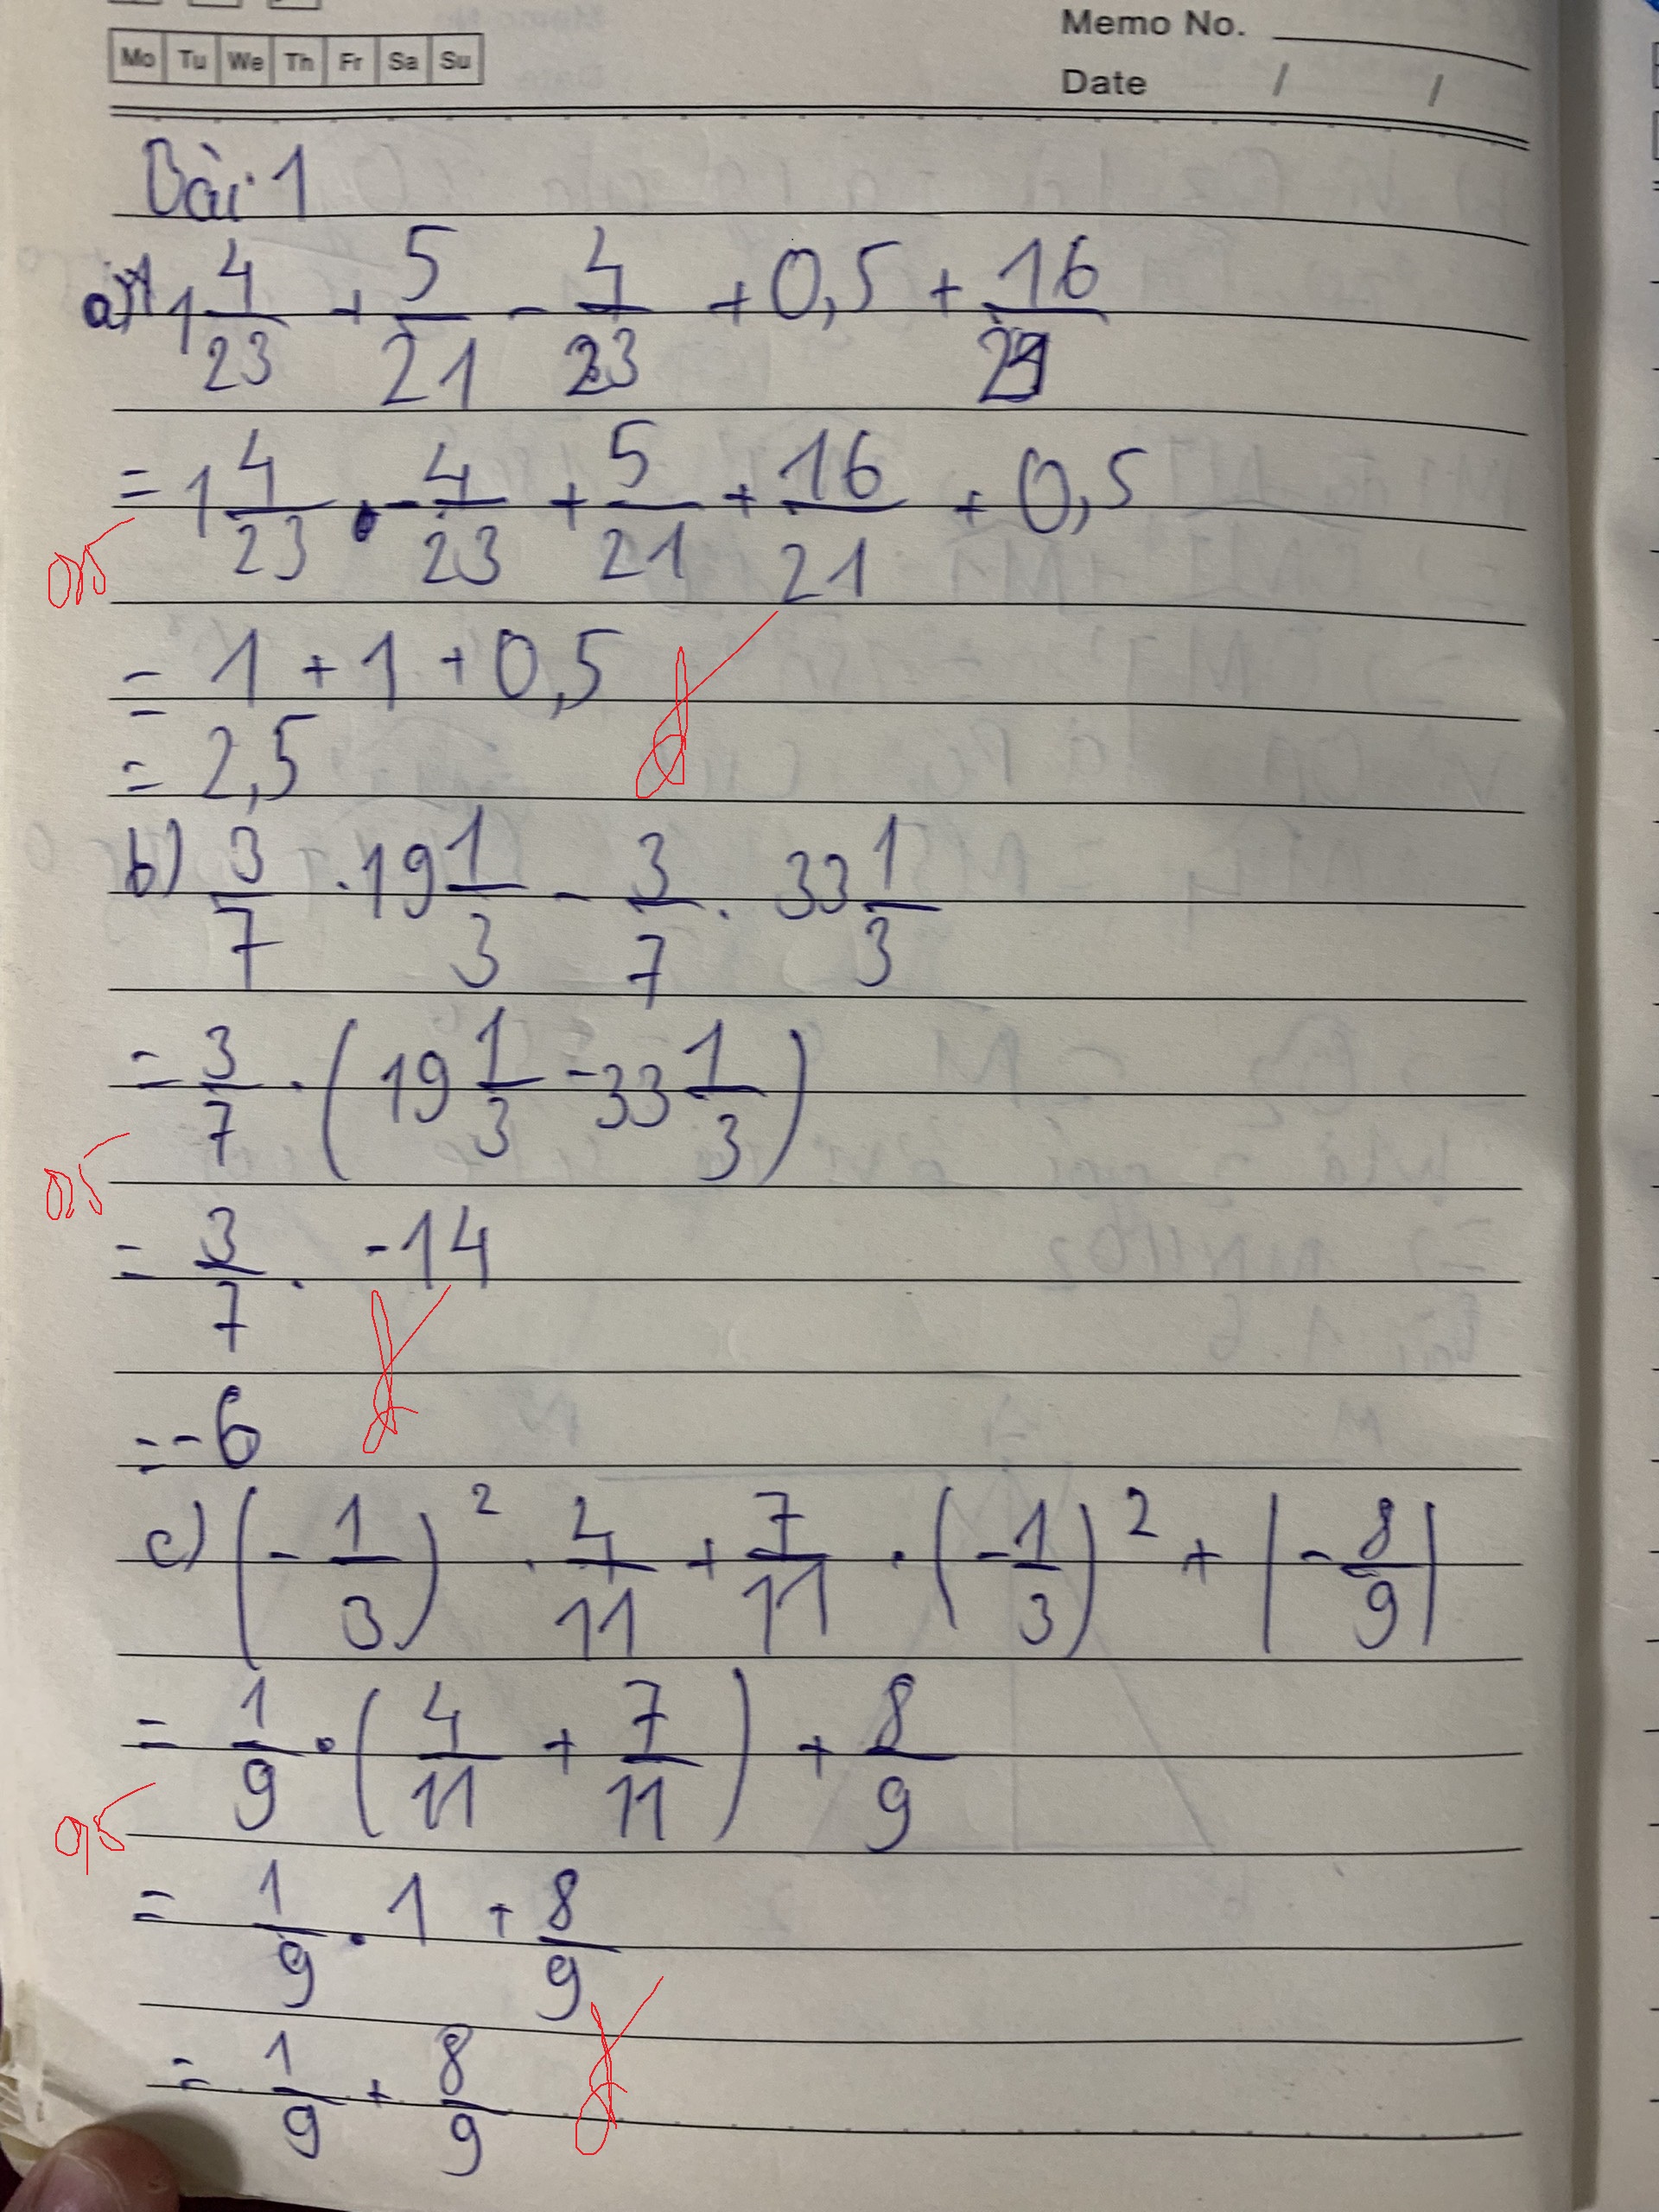 Mo Tu We Th Fr Sa Su
Memo No.
Date / /
Bài 1
a) 1 4/23 + 5/21 - 4/23 + 0,5 + 16/21
= 1 4/23 - 4/23 + 5/21 + 16/21 + 0,5
0,5
= 1 + 1 + 0,5
đ
= 2,5
b) 3/7 . 19 1/3 - 3/7 . 33 1/3
= 3/7 . (19 1/3 - 33 1/3)
0,5
= 3/7 . -14
đ
= -6
c) (-1/3)² . 4/11 + 7/11 . (-1/3)² + |-8/9|
= 1/9 . (4/11 + 7/11) + 8/9
0,5
= 1/9 . 1 + 8/9
= 1/9 + 8/9
đ